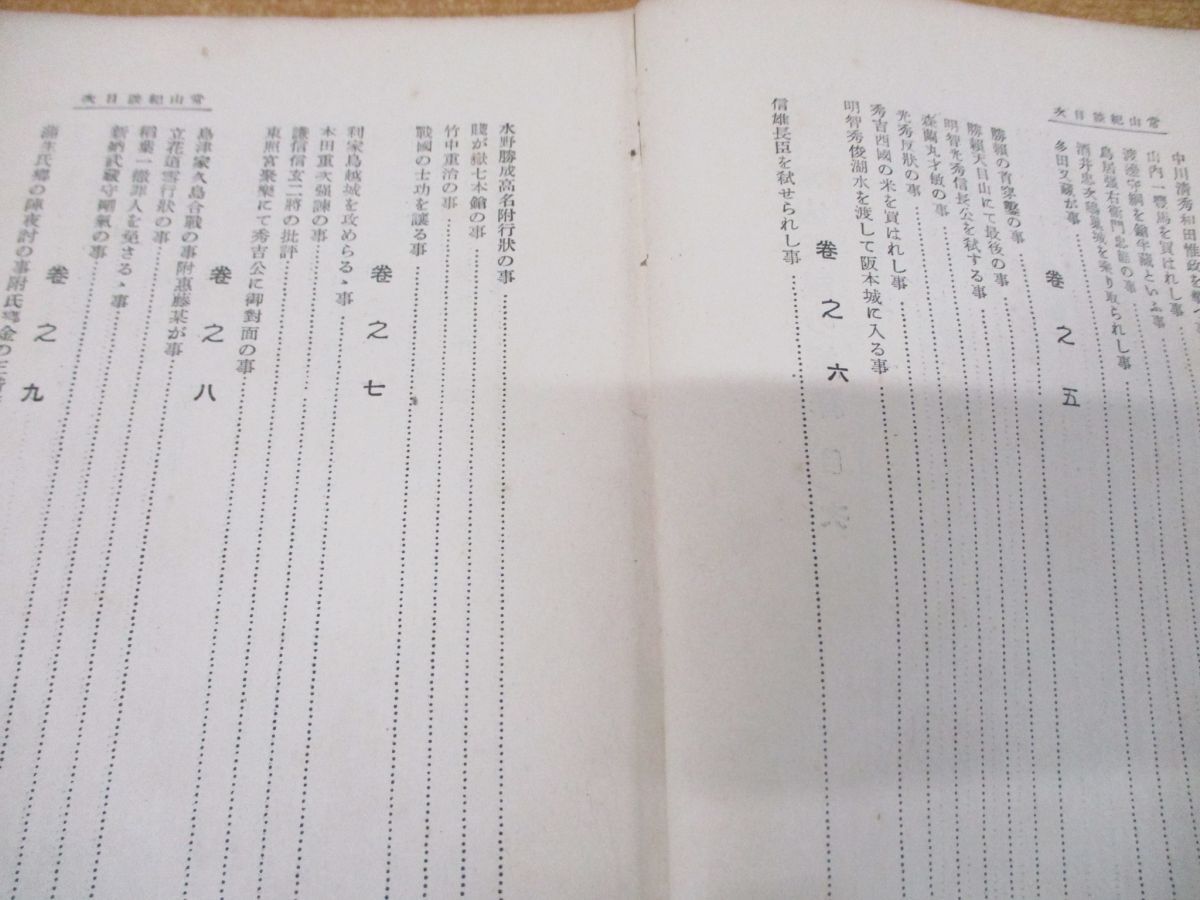 常山紀談目次
中川清秀和田惟政を撃
山内一豐馬を買はれし事
渡邊守綱を鎗半藏といふ事
鳥居强右衞門忠節の事
酒井忠次鳶巢城を乘り取られし事
多田又藏が事
卷之五
勝賴の首實檢の事
勝賴天目山にて最後の事
明智光秀信長公を弑する事
森蘭丸才敏の事
光秀反狀の事
秀吉西國の米を買はれし事
明智秀俊湖水を渡して阪本城に入る事
卷之六
信雄長臣を弑せられし事
常山紀談目次
水野勝成高名附行狀の事
賤が嶽七本鎗の事
竹中重治の事
戰國の士功を讓る事
卷之七
利家鳥越城を攻めらるゝ事
本田重次强諫の事
謙信信玄二將の批評
東照宮聚樂にて秀吉公に御對面の事
卷之八
島津家久島合戰の事附惠藤某が事
立花道雪行狀の事
稻葉一徹罪人を免さるゝ事
新納武藏守剛氣の事
卷之九
蒲生氏鄕の陣夜討の事附氏鄕金の三階